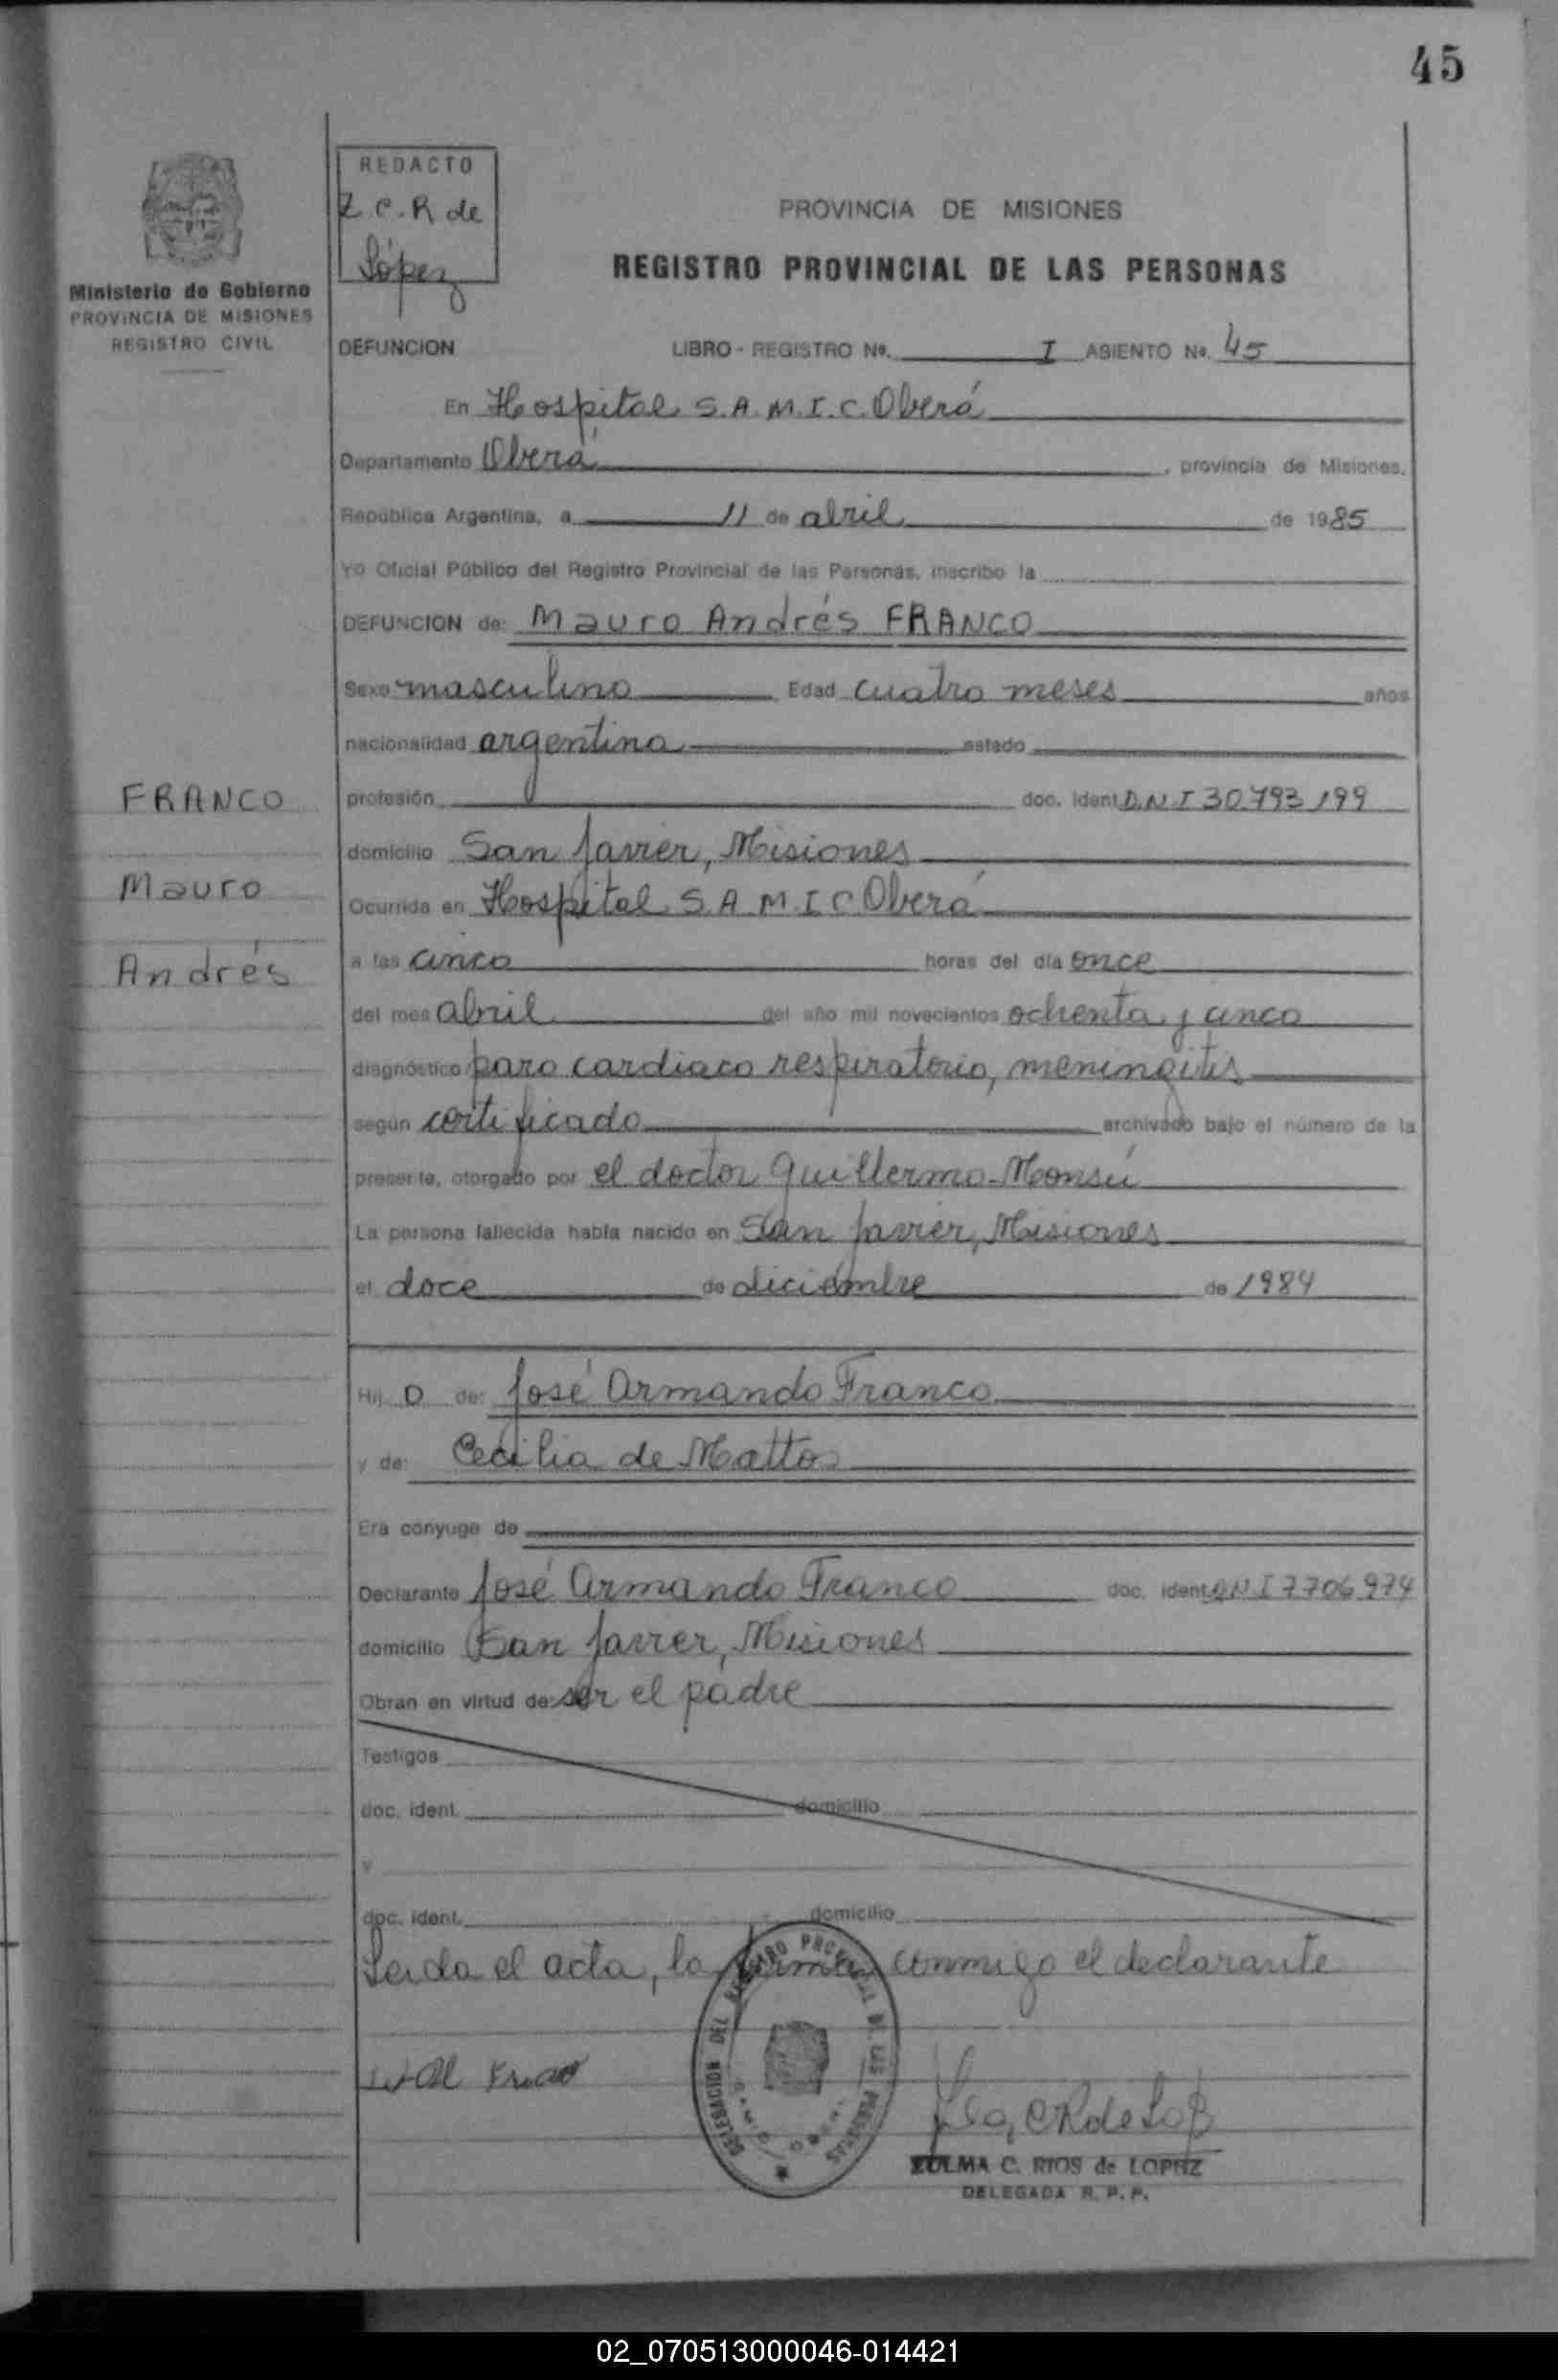 45
REDACTO
Z.C.R de
López
Ministerio de Gobierno
PROVINCIA DE MISIONES
REGISTRO CIVIL
PROVINCIA DE MISIONES
REGISTRO PROVINCIAL DE LAS PERSONAS
DEFUNCION LIBRO - REGISTRO No. I ASIENTO No. 45
En Hospital S.A.M.I.C. Oberá
Departamento Oberá , provincia de Misiones.
República Argentina, a 11 de abril de 1985
Yo Oficial Público del Registro Provincial de las Personas, inscribo la
DEFUNCION de: Mauro Andrés FRANCO
Sexo masculino Edad cuatro meses años
nacionalidad argentina estado
FRANCO
Mauro
Andrés
profesión doc. ident D.N.I 30.793.199
domicilio San Javier, Misiones
Ocurrida en Hospital S.A.M.I.C Oberá
a las cinco horas del día once
del mes abril del año mil novecientos ochenta y cinco
diagnóstico paro cardiaco respiratorio, meningitis
según certificado archivado bajo el número de la
presente, otorgado por el doctor Guillermo Monsú
La persona fallecida había nacido en San Javier, Misiones
el doce de diciembre de 1984
Hij o de: José Armando Franco
y de: Cecilia de Mattos
Era cónyuge de
Declarante José Armando Franco doc. ident. DNI 7706974
domicilio San Javier, Misiones
Obran en virtud de: ser el padre
Testigos
doc. ident. domicilio
y
doc. ident. domicilio
Leida el acta, la firma conmigo el declarante
DELEGACION DEL REGISTRO PROVINCIAL DE LAS PERSONAS
ZULMA C. RIOS de LOPEZ
DELEGADA R. P. P.
02_070513000046-014421